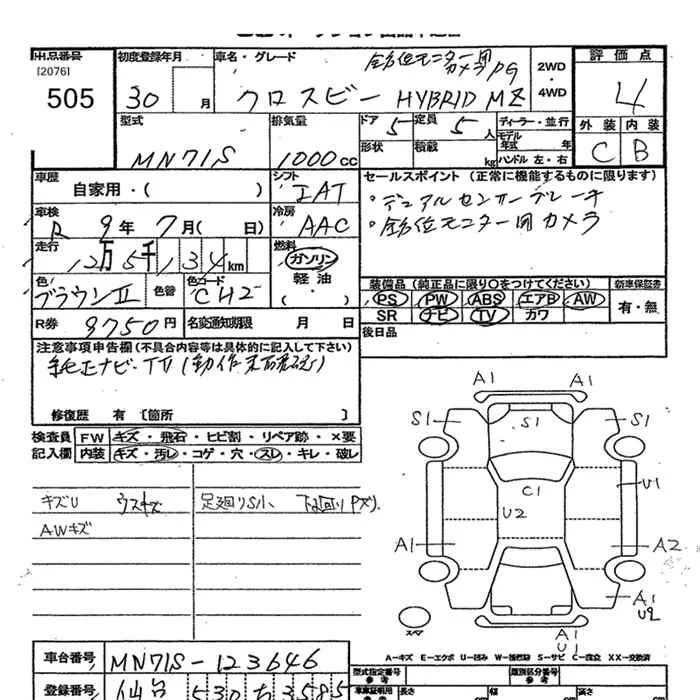 出品番号
[2076]
505
初度登録年月
30 月
車名・グレード
全方位モニター用
カメラPG
クロスビー HYBRID MZ
2WD
・
4WD
評価点
4
外装 内装
C B
型式
MN71S
排気量
1000cc
ドア 5
形状
定員 5 人
積載 kg
ディーラー・並行
モデル年式 年
ハンドル 左・右
車歴
自家用・( )
シフト
IAT
セールスポイント (正常に機能するものに限ります)
・デュアルセンサーブレーキ
・全方位モニター用カメラ
車検
R 9年 7月( 日)
冷房
AAC
走行
12万5千134km
燃料
ガソリン
軽油
( ・ )
色
ブラウンII
色替
色コード
CH2
装備品 (純正品に限り○をつけてください)
PS PW ABS エアB AW
SR ナビ TV カワ
新車保証書
有・無
R券 9750円
名変通知期限 月 日
後日品
注意事項申告欄(不具合内容等は具体的に記入して下さい)
純正ナビ・TV(動作未確認)
修復歴 有 〔箇所 〕
検査員
記入欄
FW キズ・飛石・ヒビ割・リペア跡・×要
内装 キズ・汚レ・コゲ・穴・スレ・キレ・破レ
キズU ウスキズ
足廻りS小、下回りPズ).
AWキズ
A1 A1
S1 S1 S1
C1
U2
U1
A1 A2
A1
U2
スペア
A1
U1
A-キズ E-エクボ U-凹み W-補修跡 S-サビ C-腐食 XX-交換済
車台番号 MN71S-123646
登録番号 仙台 530 ち 3585
型式指定番号
類別区分番号
車庫証明用
参考
長さ 幅 高さ